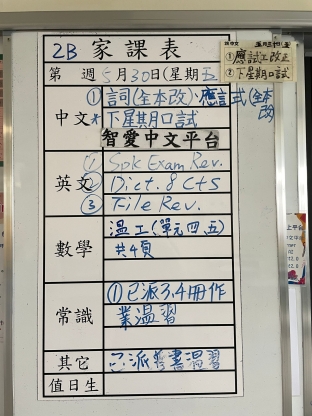 2B 家課表
第 週 5月30日(星期五)
中文
①言司(全本改)、應試(全本改)
*下星期口試
智愛中文平台
英文
① Spk Exam Rev.
② Dict. 8 Cts
③ File Rev.
數學
溫工(單元四,五)
共4頁
常識
(1)已派3,4冊作
業溫習
其它
已派 書溫習
值日生
①應試工改正
②下星期口試